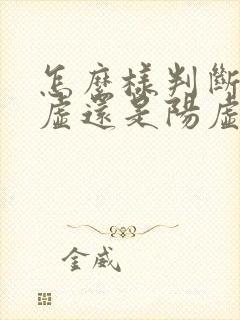 怎麽樣判斷
虛還是陽虛
金威